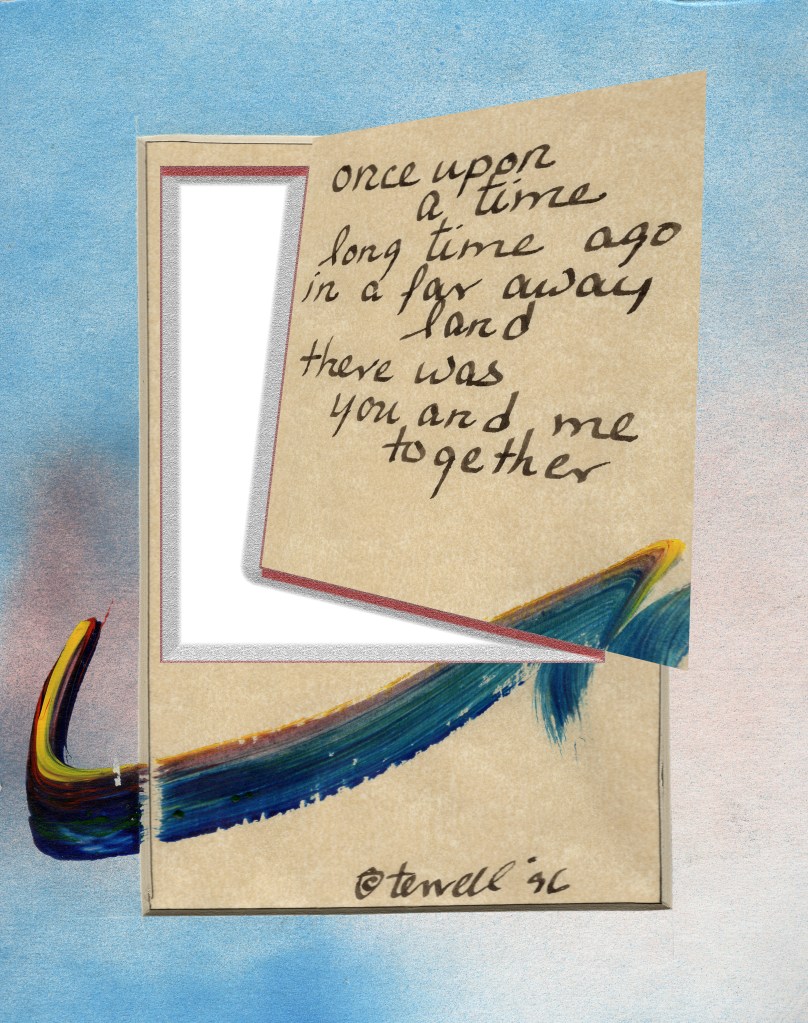 once upon
a time
long time ago
in a far away
land
there was
you and me
together
© terrell '96